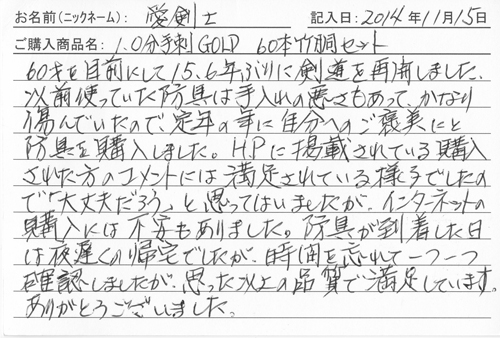 お名前(ニックネーム): 愛剣士 記入日: 2014年11月15日
ご購入商品名: 1.0分手刺GOLD 60本竹胴セット
60才を目前にして15,6年ぶりに剣道を再開しました。
以前使っていた防具は手入れの悪さもあって、かなり
傷んでいたので、定年の年に自分へのご褒美にと
防具を購入しました。HPに掲載されている購入
された方のコメントには満足されている様子でしたの
で「大丈夫だろう」と思ってはいましたが、インターネットの
購入には不安もありました。防具が到着した日
は夜遅くの帰宅でしたが、時間を忘れて一つ一つ
確認しましたが、思った以上の品質で満足しています。
ありがとうございました。